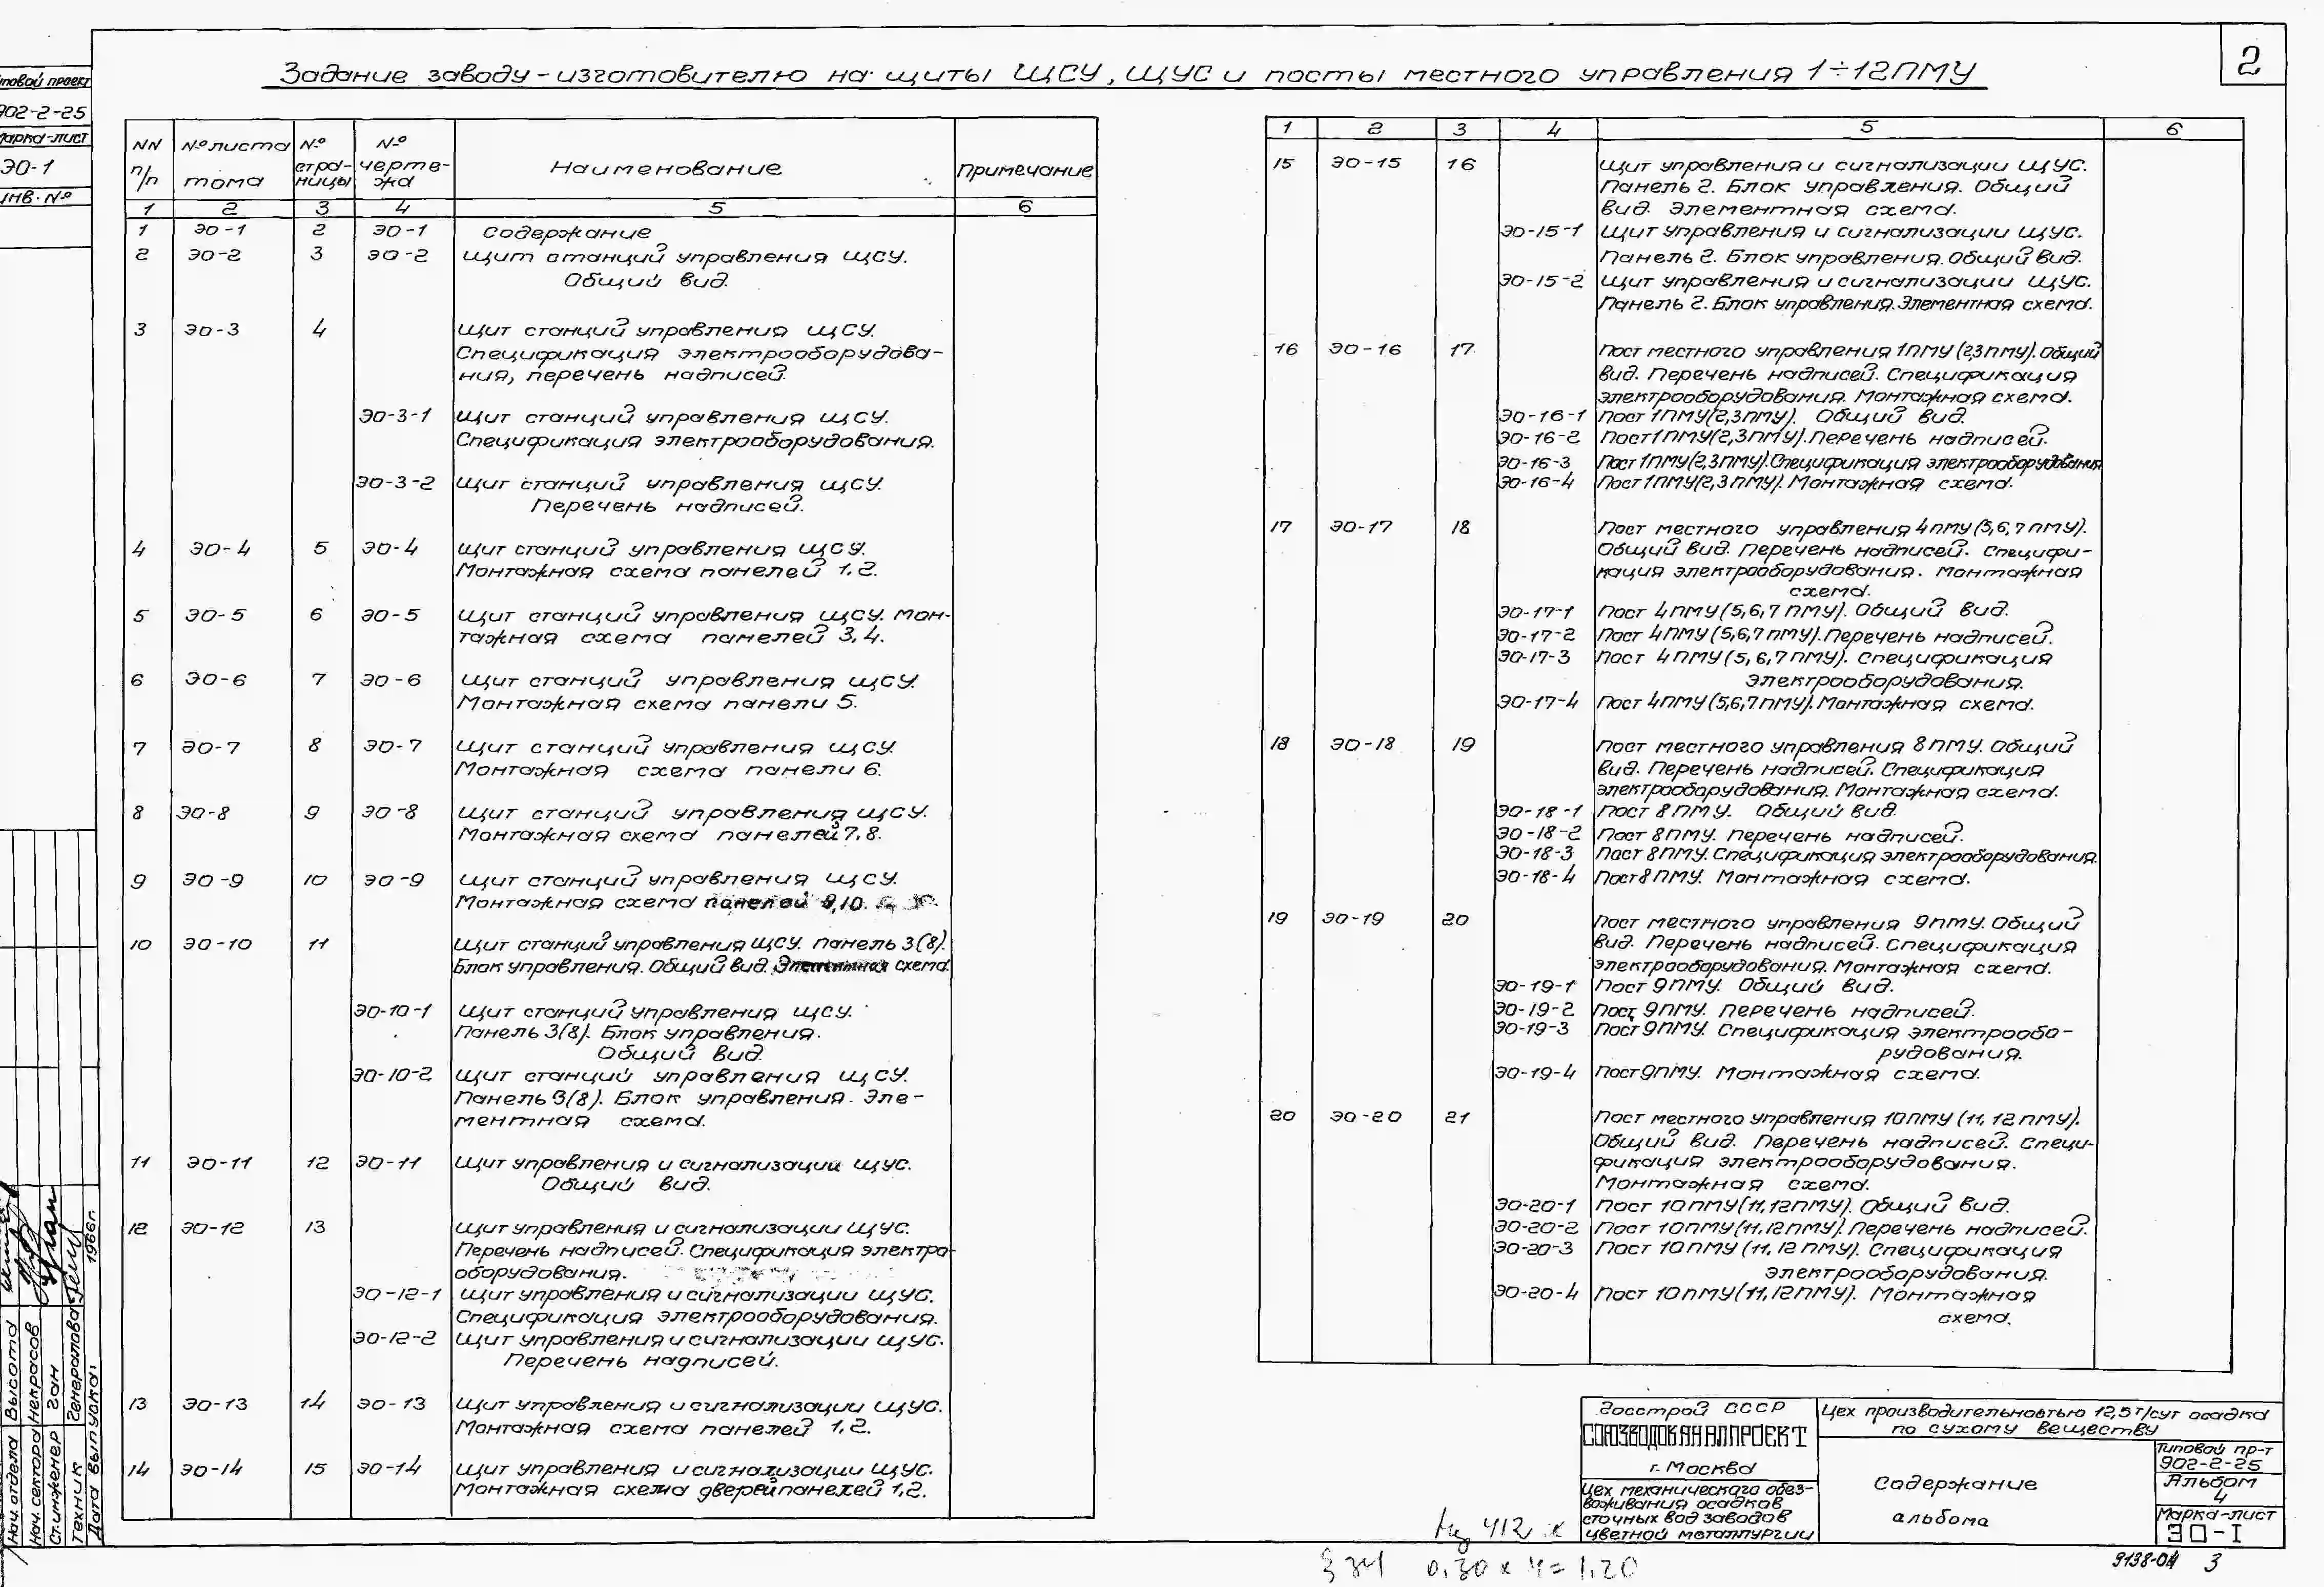 2
Задание заводу-изготовителю на щиты ЩСУ, ЩУС и посты местного управления 1÷12ПМУ
902-2-25
Марка-лист
ЭО-1
Инв. №
NN п/п № листа тома № страницы № чертежа Наименование Примечание
1 2 3 4 5 6
1 ЭО-1 2 ЭО-1 Содержание
2 ЭО-2 3 ЭО-2 Щит станций управления ЩСУ.
Общий вид.
3 ЭО-3 4 Щит станций управления ЩСУ.
Спецификация электрооборудова-
ния, перечень надписей.
ЭО-3-1 Щит станций управления ЩСУ.
Спецификация электрооборудования.
ЭО-3-2 Щит станций управления ЩСУ.
Перечень надписей.
4 ЭО-4 5 ЭО-4 Щит станций управления ЩСУ.
Монтажная схема панелей 1,2.
5 ЭО-5 6 ЭО-5 Щит станций управления ЩСУ. Мон-
тажная схема панелей 3,4.
6 ЭО-6 7 ЭО-6 Щит станций управления ЩСУ.
Монтажная схема панели 5.
7 ЭО-7 8 ЭО-7 Щит станций управления ЩСУ.
Монтажная схема панели 6.
8 ЭО-8 9 ЭО-8 Щит станций управления ЩСУ.
Монтажная схема панелей 7,8.
9 ЭО-9 10 ЭО-9 Щит станций управления ЩСУ.
Монтажная схема панелей 9,10.
10 ЭО-10 11 Щит станций управления ЩСУ. Панель 3(8).
Блок управления. Общий вид. Элементная схема.
ЭО-10-1 Щит станций управления ЩСУ.
Панель 3(8). Блок управления.
Общий вид.
ЭО-10-2 Щит станций управления ЩСУ.
Панель 3(8). Блок управления. Эле-
ментная схема.
11 ЭО-11 12 ЭО-11 Щит управления и сигнализации ЩУС.
Общий вид.
12 ЭО-12 13 Щит управления и сигнализации ЩУС.
Перечень надписей. Спецификация электро-
оборудования.
ЭО-12-1 Щит управления и сигнализации ЩУС.
Спецификация электрооборудования.
ЭО-12-2 Щит управления и сигнализации ЩУС.
Перечень надписей.
13 ЭО-13 14 ЭО-13 Щит управления и сигнализации ЩУС.
Монтажная схема панелей 1,2.
14 ЭО-14 15 ЭО-14 Щит управления и сигнализации ЩУС.
Монтажная схема дверей панелей 1,2.
1 2 3 4 5 6
15 ЭО-15 16 Щит управления и сигнализации ЩУС.
Панель 2. Блок управления. Общий
вид. Элементная схема.
ЭО-15-1 Щит управления и сигнализации ЩУС.
Панель 2. Блок управления. Общий вид.
ЭО-15-2 Щит управления и сигнализации ЩУС.
Панель 2. Блок управления. Элементная схема.
16 ЭО-16 17 Пост местного управления 1ПМУ (2,3ПМУ). Общий
вид. Перечень надписей. Спецификация
электрооборудования. Монтажная схема.
ЭО-16-1 Пост 1ПМУ(2,3ПМУ). Общий вид.
ЭО-16-2 Пост 1ПМУ(2,3ПМУ). Перечень надписей.
ЭО-16-3 Пост 1ПМУ(2,3ПМУ). Спецификация электрооборудования
ЭО-16-4 Пост 1ПМУ(2,3ПМУ). Монтажная схема.
17 ЭО-17 18 Пост местного управления 4ПМУ (5,6,7ПМУ).
Общий вид. Перечень надписей. Специфи-
кация электрооборудования. Монтажная
схема.
ЭО-17-1 Пост 4ПМУ(5,6,7ПМУ). Общий вид.
ЭО-17-2 Пост 4ПМУ(5,6,7ПМУ). Перечень надписей.
ЭО-17-3 Пост 4ПМУ(5,6,7ПМУ). Спецификация
электрооборудования.
ЭО-17-4 Пост 4ПМУ(5,6,7ПМУ). Монтажная схема.
18 ЭО-18 19 Пост местного управления 8ПМУ. Общий
вид. Перечень надписей. Спецификация
электрооборудования. Монтажная схема.
ЭО-18-1 Пост 8ПМУ. Общий вид.
ЭО-18-2 Пост 8ПМУ. Перечень надписей.
ЭО-18-3 Пост 8ПМУ. Спецификация электрооборудования.
ЭО-18-4 Пост 8ПМУ. Монтажная схема.
19 ЭО-19 20 Пост местного управления 9ПМУ. Общий
вид. Перечень надписей. Спецификация
электрооборудования. Монтажная схема.
ЭО-19-1 Пост 9ПМУ. Общий вид.
ЭО-19-2 Пост 9ПМУ. Перечень надписей.
ЭО-19-3 Пост 9ПМУ. Спецификация электрообо-
рудования.
ЭО-19-4 Пост 9ПМУ. Монтажная схема.
20 ЭО-20 21 Пост местного управления 10ПМУ (11,12ПМУ).
Общий вид. Перечень надписей. Специ-
фикация электрооборудования.
Монтажная схема.
ЭО-20-1 Пост 10ПМУ(11,12ПМУ). Общий вид.
ЭО-20-2 Пост 10ПМУ(11,12ПМУ). Перечень надписей.
ЭО-20-3 Пост 10ПМУ(11,12ПМУ). Спецификация
электрооборудования.
ЭО-20-4 Пост 10ПМУ(11,12ПМУ). Монтажная
схема.
Нач. отдела Высота
Нач. сектора Некрасов
Ст. инженер Ган
Техник Генералова
Дата выпуска: 1966г.
Госстрой СССР
СОЮЗВОДОКАНАЛПРОЕКТ
г. Москва
Цех механического обез-
воживания осадков
сточных вод заводов
цветной металлургии
Цех производительностью 12,5т/сут осадка
по сухому веществу
Содержание
альбома
Типовой пр-т
902-2-25
Альбом
4
Марка-лист
ЭО-I
412 x
0,30 x 4 = 1,20
9138-04 3